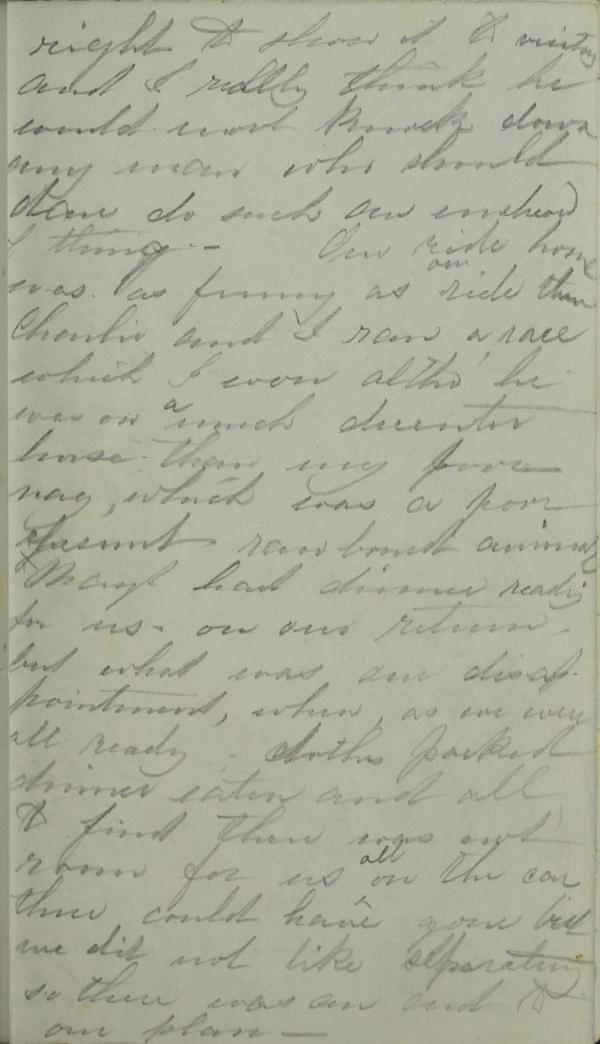 right to show it to visitors
and I really think he
would most knock down
any man who should
dare do such an unheard
thing - Our ride home
was as funny as our ride then
Charlie and I ran a race
which I won altho' he
was on a much decenter
horse than my poor
nag, which was a poor
raw boned animal
Mary had dinner ready
for us - on our return -
but what was our disap-
pointment, when, as we were
all ready, cloths packed
dinner eaten and all
to find there was not
room for us all on the car
three could have gone but
we did not like separating
so there was an end to
our plan -